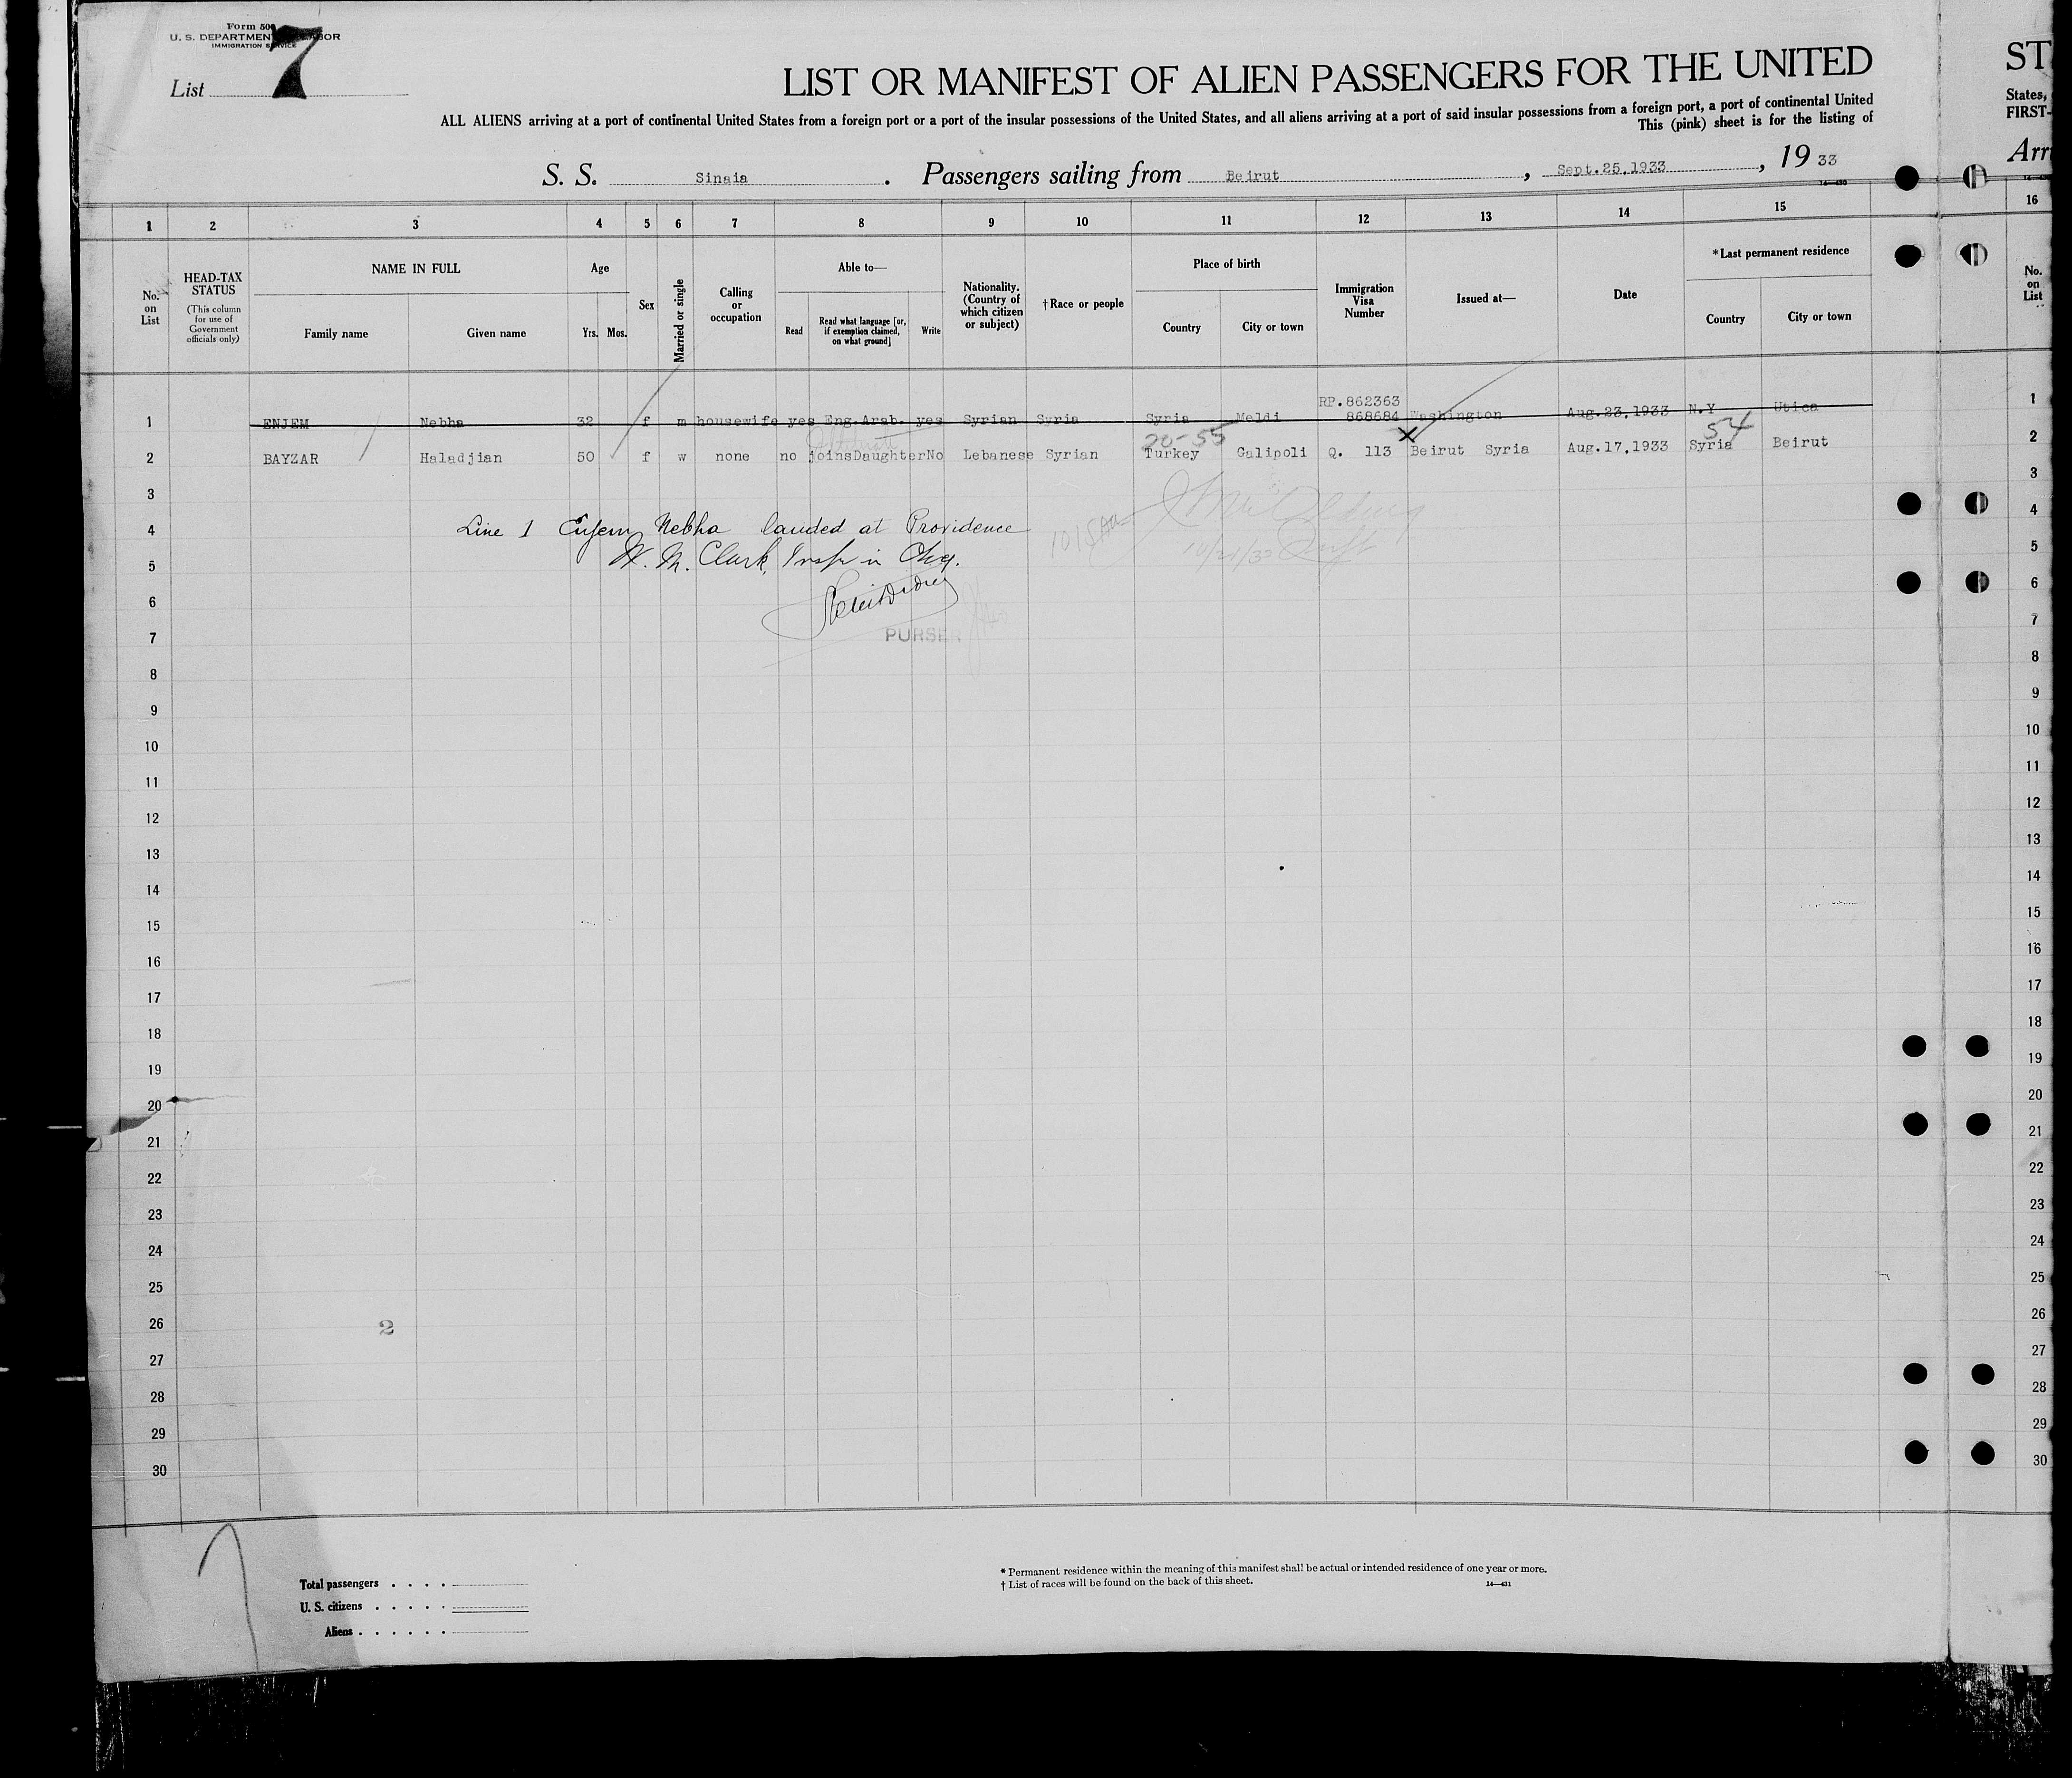 Form 50
U. S. DEPARTMENT LABOR
IMMIGRATION SERVICE
List 7
LIST OR MANIFEST OF ALIEN PASSENGERS FOR THE UNITED
ALL ALIENS arriving at a port of continental United States from a foreign port or a port of the insular possessions of the United States, and all aliens arriving at a port of said insular possessions from a foreign port, a port of continental United
This (pink) sheet is for the listing of
S. S. Sinaia . Passengers sailing from Beirut , Sept.25,1933 , 19 33
14—430
ST
States,
FIRST-
Arri
1 2 3 4 5 6 7 8 9 10 11 12 13 14 15 16
No. on List
HEAD-TAX STATUS (This column for use of Government officials only)
NAME IN FULL
Family name Given name
Age
Yrs. Mos.
Sex
Married or single
Calling or occupation
Able to—
Read
Read what language [or, if exemption claimed, on what ground]
Write
Nationality. (Country of which citizen or subject)
†Race or people
Place of birth
Country City or town
Immigration Visa Number
Issued at—
Date
*Last permanent residence
Country City or town
No. on List
RP.862363
1 ENJEM Nebha 32 f m housewife yes Eng.Arab. yes Syrian Syria Syria Meldi 868684 Washington Aug.23,1933 N.Y Utica 1
20-55 X 54
2 BAYZAR Haladjian 50 f w none no joinsDaughterNo Lebanese Syrian Turkey Galipoli Q. 113 Beirut Syria Aug.17,1933 Syria Beirut 2
3 3
4 Line 1 Enjem, Nebha landed at Providence 4
5 W. M. Clark, Insp in Chg. 5
6 6
7 PURSER 7
8 8
9 9
10 10
11 11
12 12
13 13
14 14
15 15
16 16
17 17
18 18
19 19
20 20
21 21
22 22
23 23
24 24
25 25
26 2 26
27 27
28 28
29 29
30 30
Total passengers . . . .
U. S. citizens . . . . .
Aliens . . . . . .
* Permanent residence within the meaning of this manifest shall be actual or intended residence of one year or more.
† List of races will be found on the back of this sheet.
14—431